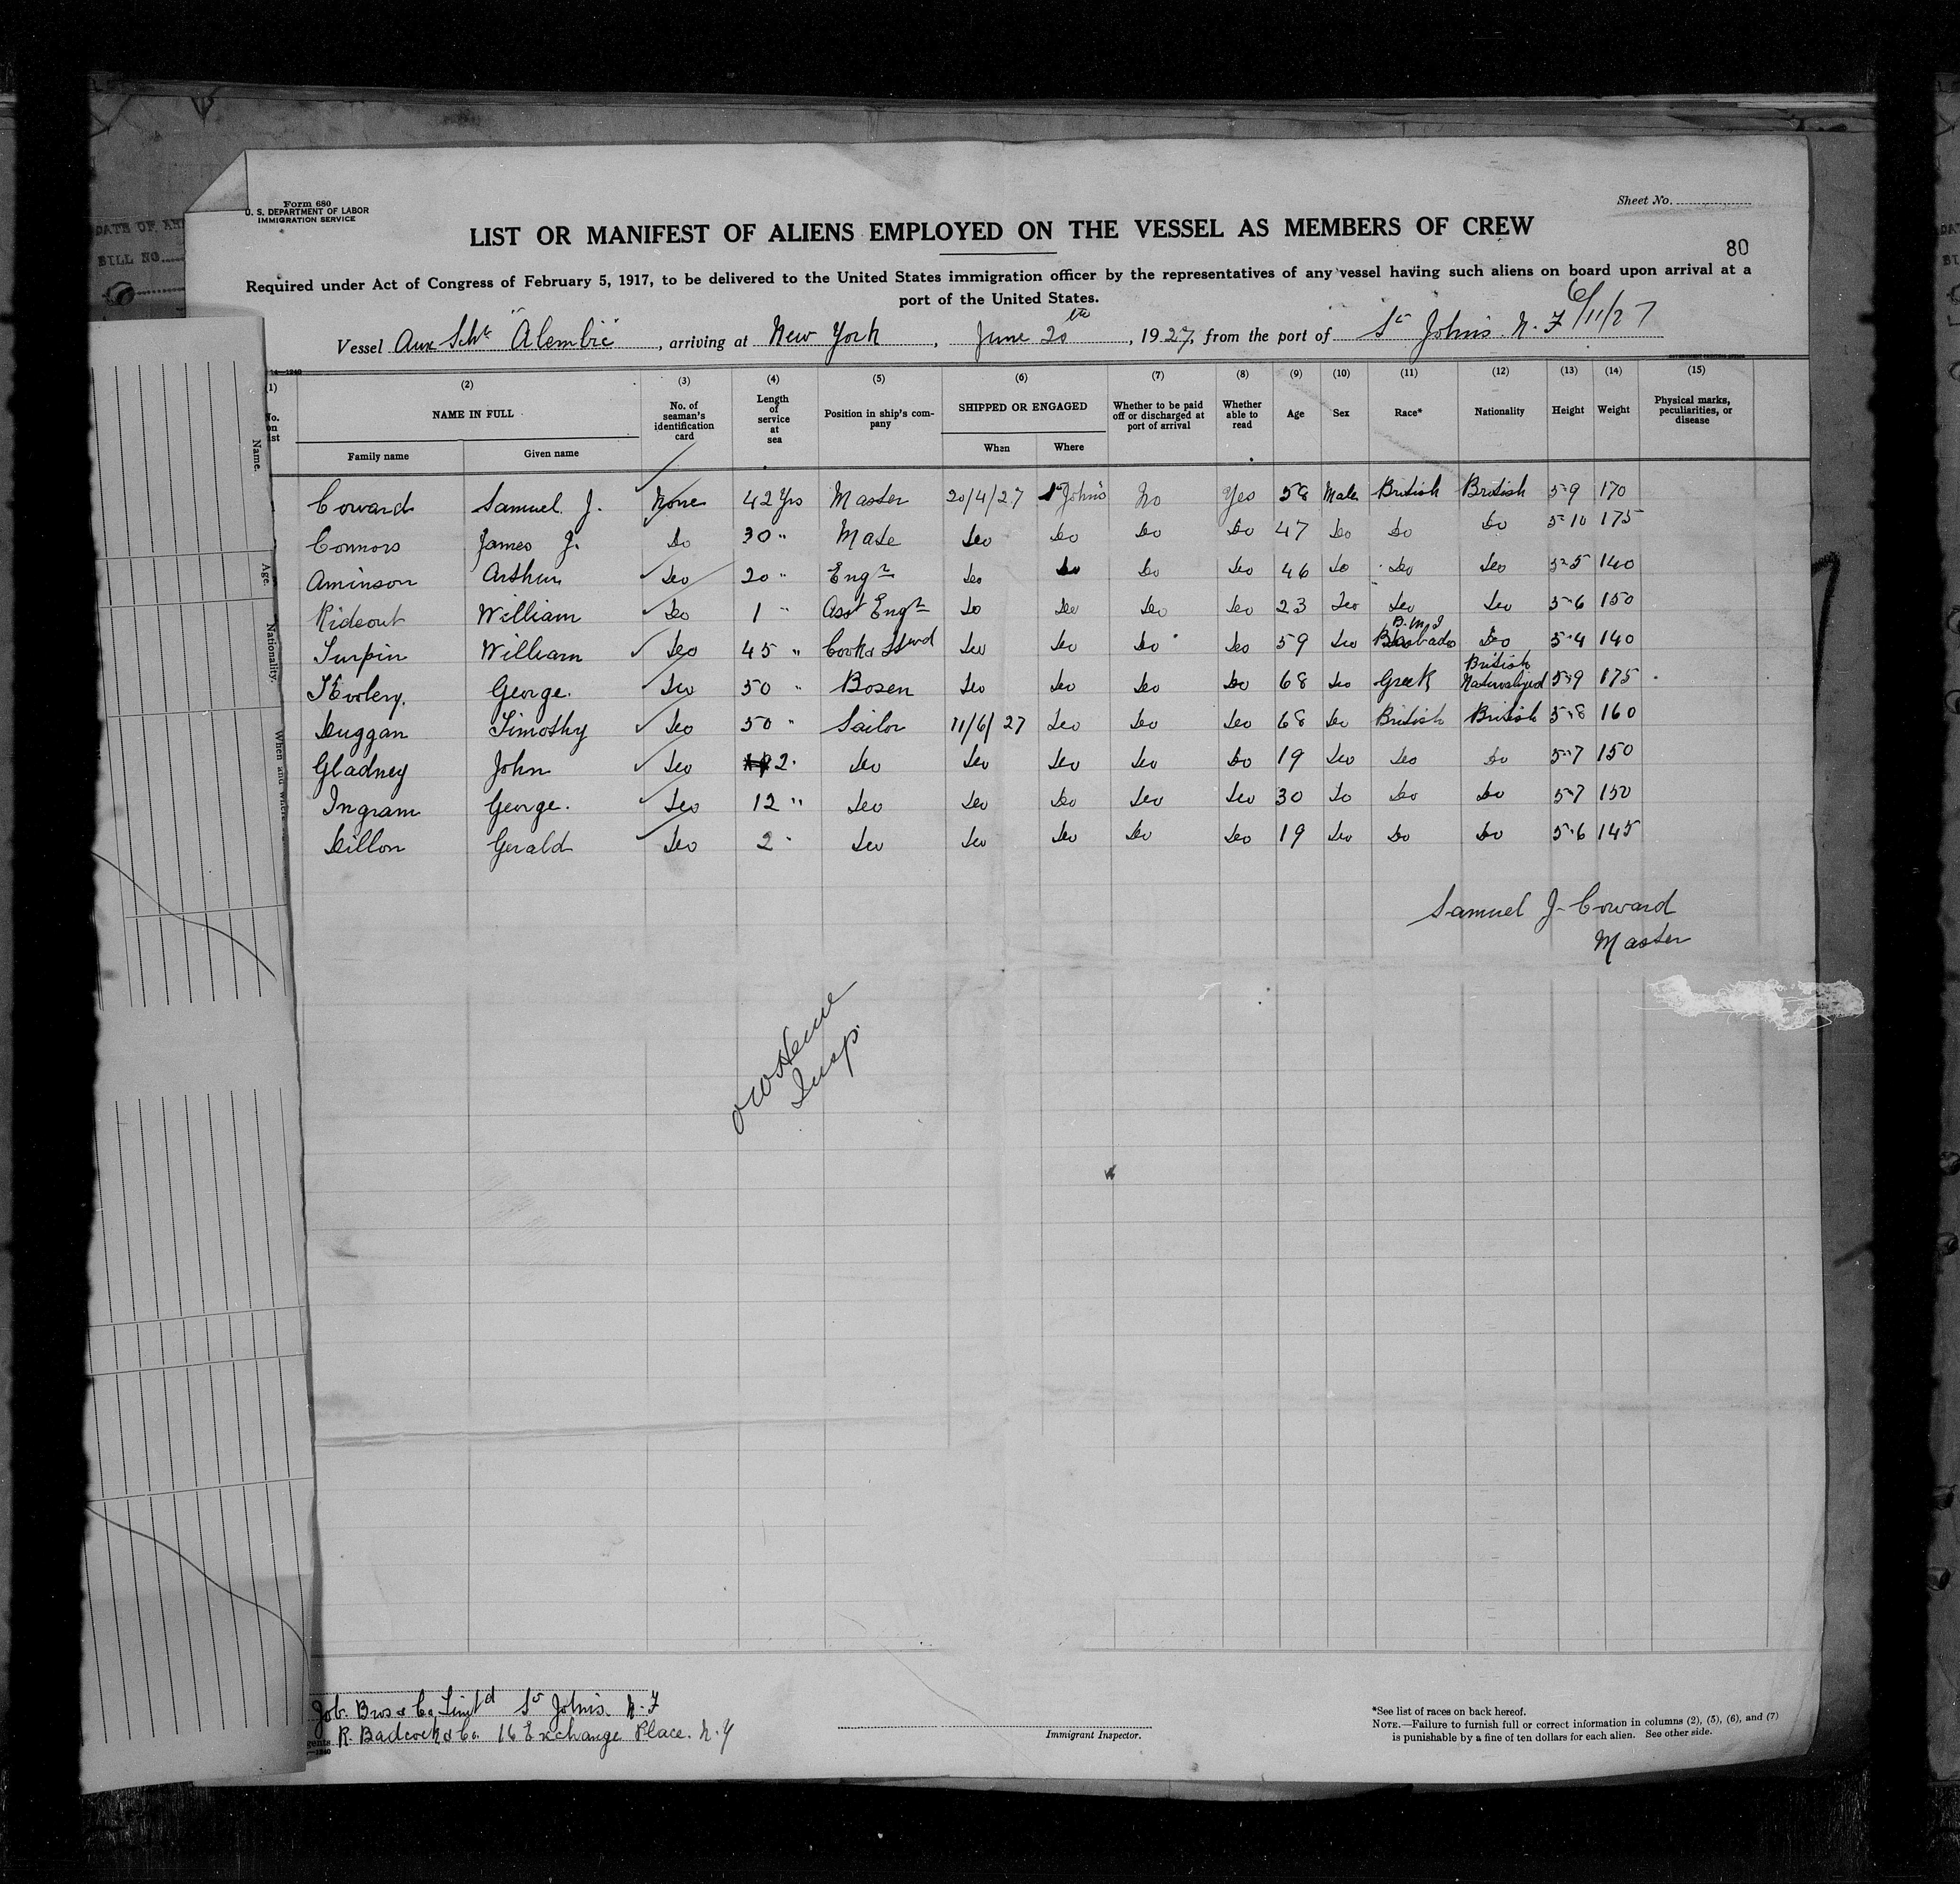 Form 680
U. S. DEPARTMENT OF LABOR
IMMIGRATION SERVICE
Sheet No.
LIST OR MANIFEST OF ALIENS EMPLOYED ON THE VESSEL AS MEMBERS OF CREW
80
Required under Act of Congress of February 5, 1917, to be delivered to the United States immigration officer by the representatives of any vessel having such aliens on board upon arrival at a
port of the United States.
6/11/27
Vessel Aux Schr "Alembic", arriving at New York, June 20th, 1927, from the port of St Johns N.F
14—1240
(1) (2) (3) (4) (5) (6) (7) (8) (9) (10) (11) (12) (13) (14) (15)
No. on list NAME IN FULL Family name Given name No. of seaman's identification card Length of service at sea Position in ship's company SHIPPED OR ENGAGED When Where Whether to be paid off or discharged at port of arrival Whether able to read Age Sex Race* Nationality Height Weight Physical marks, peculiarities, or disease
Coward Samuel J. None 42 Yrs Master 20/4/27 St Johns No Yes 58 Male British British 5-9 170
Connors James J. Do 30 " Mate Do Do Do Do 47 Do Do Do 5-10 175
Aminson Arthur Do 20 " Engr Do Do Do Do 46 Do Do Do 5-5 140
Rideout William Do 1 " Asst Engr Do Do Do Do 23 Do Do Do 5-6 150
Turpin William Do 45 " Cook & Stwd Do Do Do Do 59 Do B.W.I Barbado Do 5-4 140
George. Do 50 " Bosen Do Do Do Do 68 Do Greek British Naturalized 5-9 175
Duggan Timothy Do 50 " Sailor 11/6/27 Do Do Do 68 Do British British 5-8 160
Gladney John Do 2 " Do Do Do Do Do 19 Do Do Do 5-7 150
Ingram George. Do 12 " Do Do Do Do Do 30 Do Do Do 5-7 150
Dillon Gerald Do 2 " Do Do Do Do Do 19 Do Do Do 5-6 145
Samuel J. Coward
Master
Insp.
Job Bros & Co Limtd St Johns. N.F
R. Badcock & Co. 16 Exchange Place. N.Y
Immigrant Inspector.
*See list of races on back hereof.
NOTE.—Failure to furnish full or correct information in columns (2), (5), (6), and (7)
is punishable by a fine of ten dollars for each alien. See other side.
Name.
Age.
Nationality.
When and where
DATE OF
BILL NO.